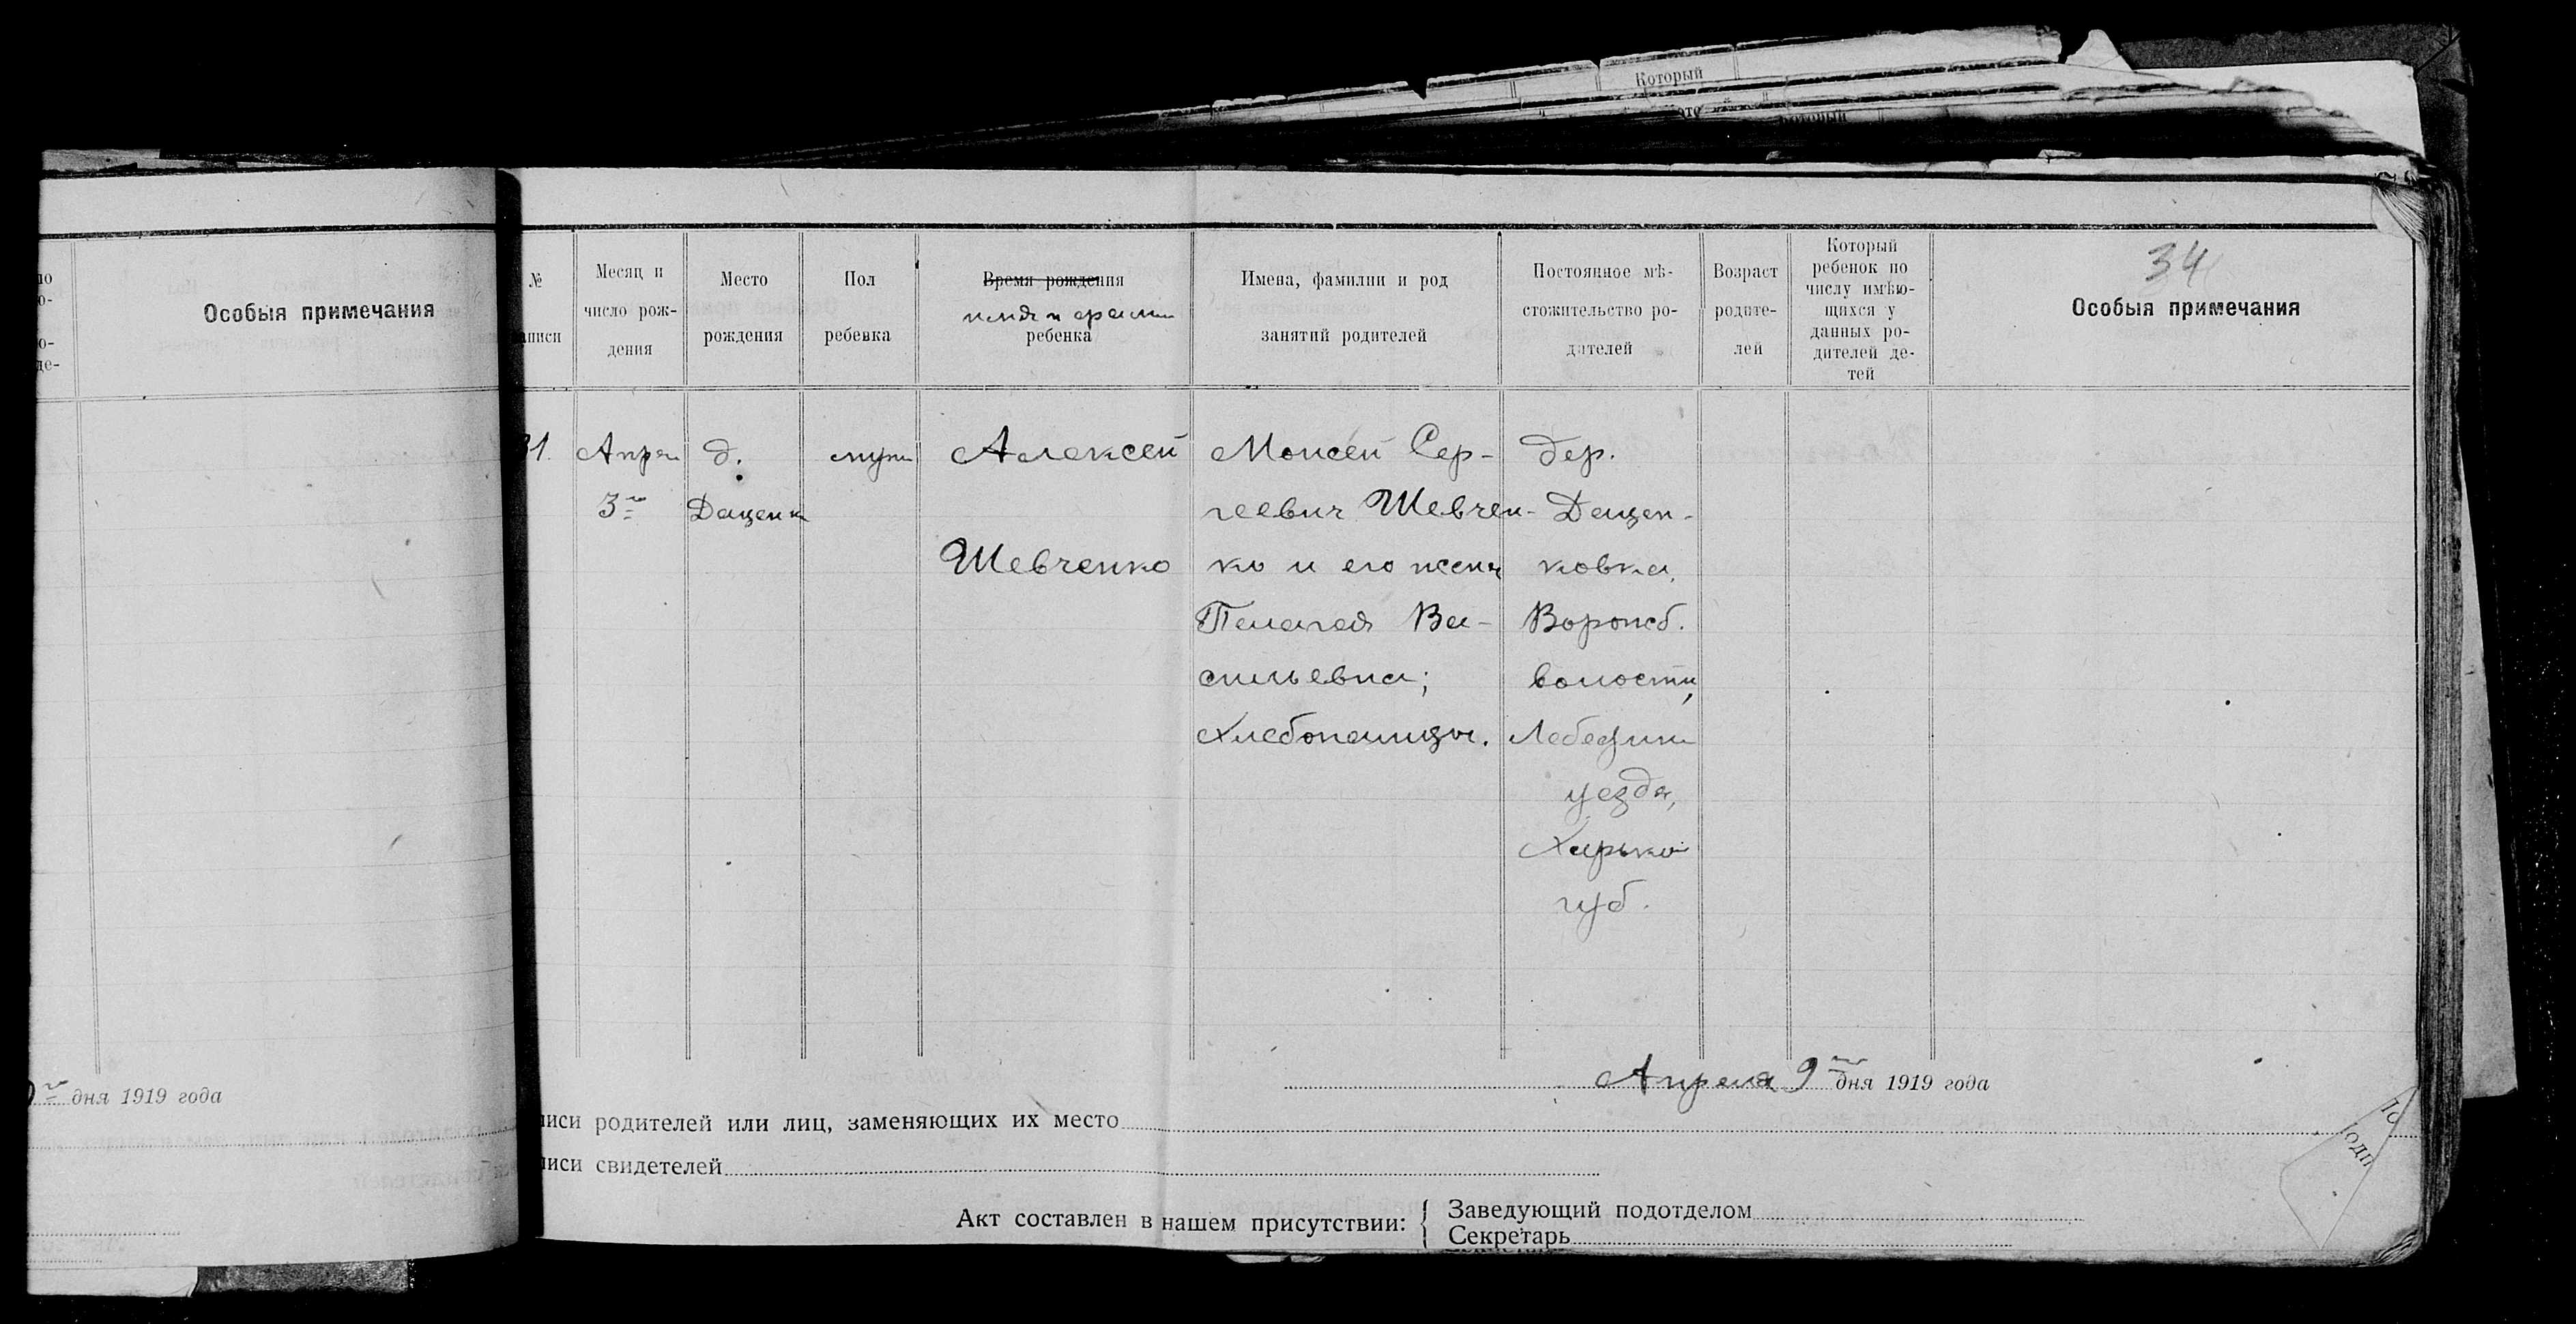 Который
Который
Особыя примечания
дня 1919 года
34
№
Месяц и
число рож-
дения
Место
рождения
Пол
ребенка
Время рождения
имя и фамил
ребенка
Имена, фамилии и род
занятий родителей
Постоянное мѣ-
стожительство ро-
дителей
Возраст
родите-
лей
Который
ребенок по
числу имѣю-
щихся у
данных ро-
дителей де-
тей
Особыя примечания
31.
Апрел
3го
д.
Даценк
муж
Алексей
Шевченко
Моисей Сер-
геевич Шевчен-
ко и его жена
Пелагея Ва-
сильевна;
Хлебопашцы.
дер.
Дацен-
ковка,
Ворожб.
волости,
Лебедин
уезда,
Харьков
губ.
Апреля 9го дня 1919 года
писи родителей или лиц, заменяющих их место
писи свидетелей
Акт составлен в нашем присутствии:
Заведующий подотделом
Секретарь